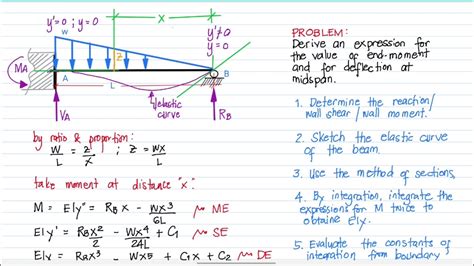 y'=0 ; y=0
X
y'≠0
y=0
W
Z
MA
A
B
L
elastic curve
VA
RB
by ratio & proportion:
W/L = z/x ; z = wx/L
take moment at distance "x":
M = EIy" = RBX - wx³/6L ~ ME
EIy' = RBx²/2 - wx⁴/24L + C1 ~ SE
EIy = RBx³/ - wx5 + C1x + C2 ~ DE
PROBLEM:
Derive an expression for
the value of end-moment
and for deflection at
midspan.
1. Determine the reaction/
wall shear / wall moment.
2. Sketch the elastic curve
of the beam.
3. Use the method of sections.
4. By integration, integrate the
expressions for M twice to
obtaine EIy.
5. Evaluate the constants of
integration from boundary